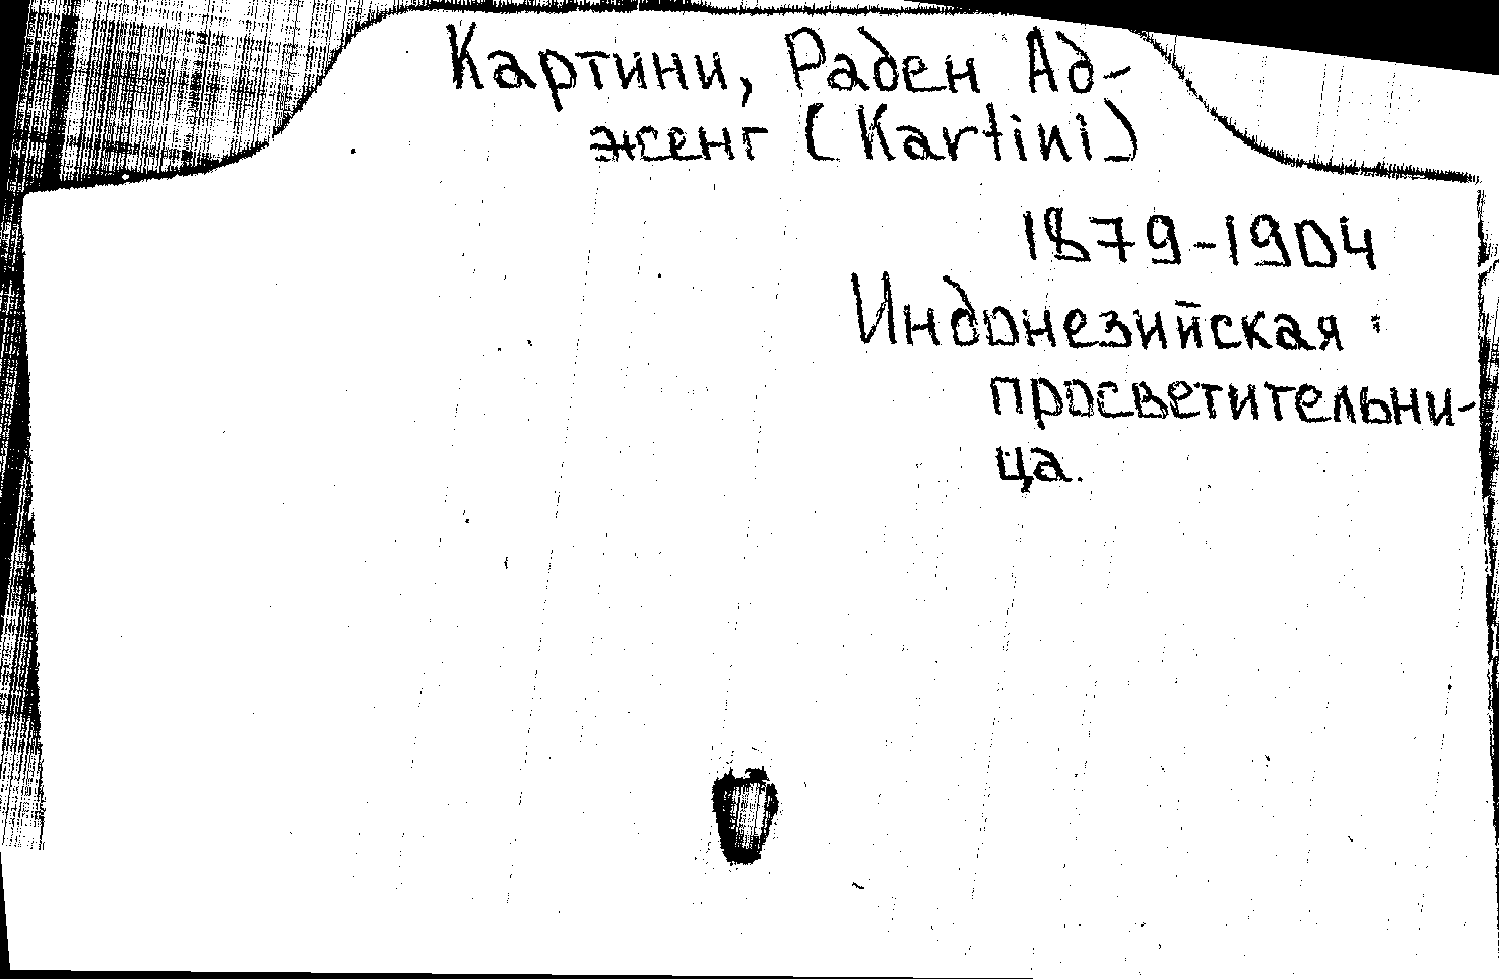 Картини, Раден Ад-
женг (Kartini)
1879-1904
Индонезийская
просветительни-
ца.